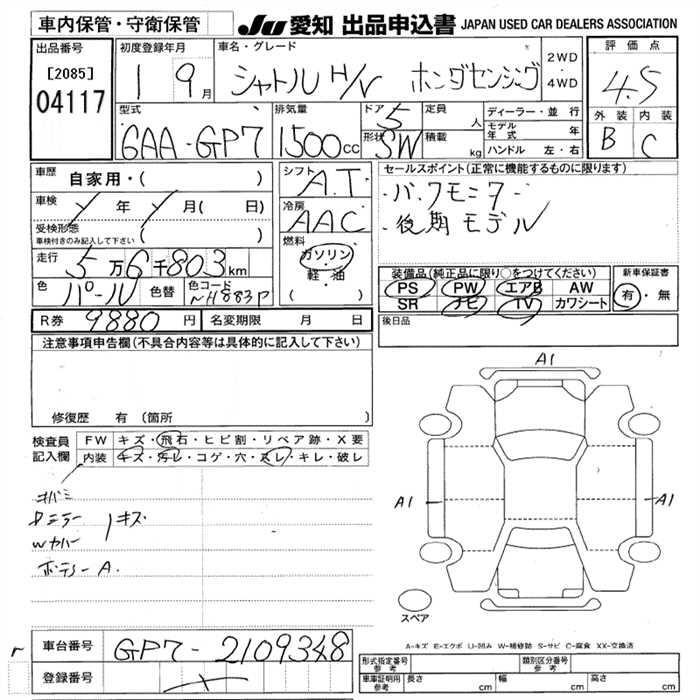 車内保管・守衛保管
JU 愛知 出品申込書 JAPAN USED CAR DEALERS ASSOCIATION
出品番号 初度登録年月 車名・グレード 評価点
[2085] 1 9月 シャトル H/V ホンダセンシング 2WD・4WD 4.5
04117
型式 排気量 ドア 5 定員 人 ディーラー・並行 外装 内装
6AA-GP7 1500cc 形状 SW 積載 kg モデル年式 年 B C
ハンドル 左・右
車歴 自家用・( ) シフト A.T セールスポイント(正常に機能するものに限ります)
車検 年 月( 日) 冷房 AAC ・バックモニター
受検形態 ・後期モデル
車検付きのみ記入して下さい ( ) 燃料
走行 5万6千803km ガソリン・軽・油 装備品(純正品に限り○をつけてください) 新車保証書
色 パール 色替 色コード NH883P ( ) PS PW エアB AW 有・無
SR ナビ TV カワシート
R券 9880円 名変期限 月 日 後日品
注意事項申告欄(不具合内容等は具体的に記入して下さい)
修復歴 有(箇所
検査員 FW キズ・飛石・ヒビ割・リペア跡・X要
記入欄 内装 キズ・汚レ・コゲ・穴・スレ・キレ・破レ
A1
A1
A1
キズ
ボデーA.
スペア
A-キズ E-エクボ U-凹み W-補修跡 S-サビ C-腐食 XX-交換済
車台番号 GP7-2109348 形式指定番号 参考 類別区分番号 参考
登録番号 車庫証明用 参考 長さ cm 幅 cm 高さ cm